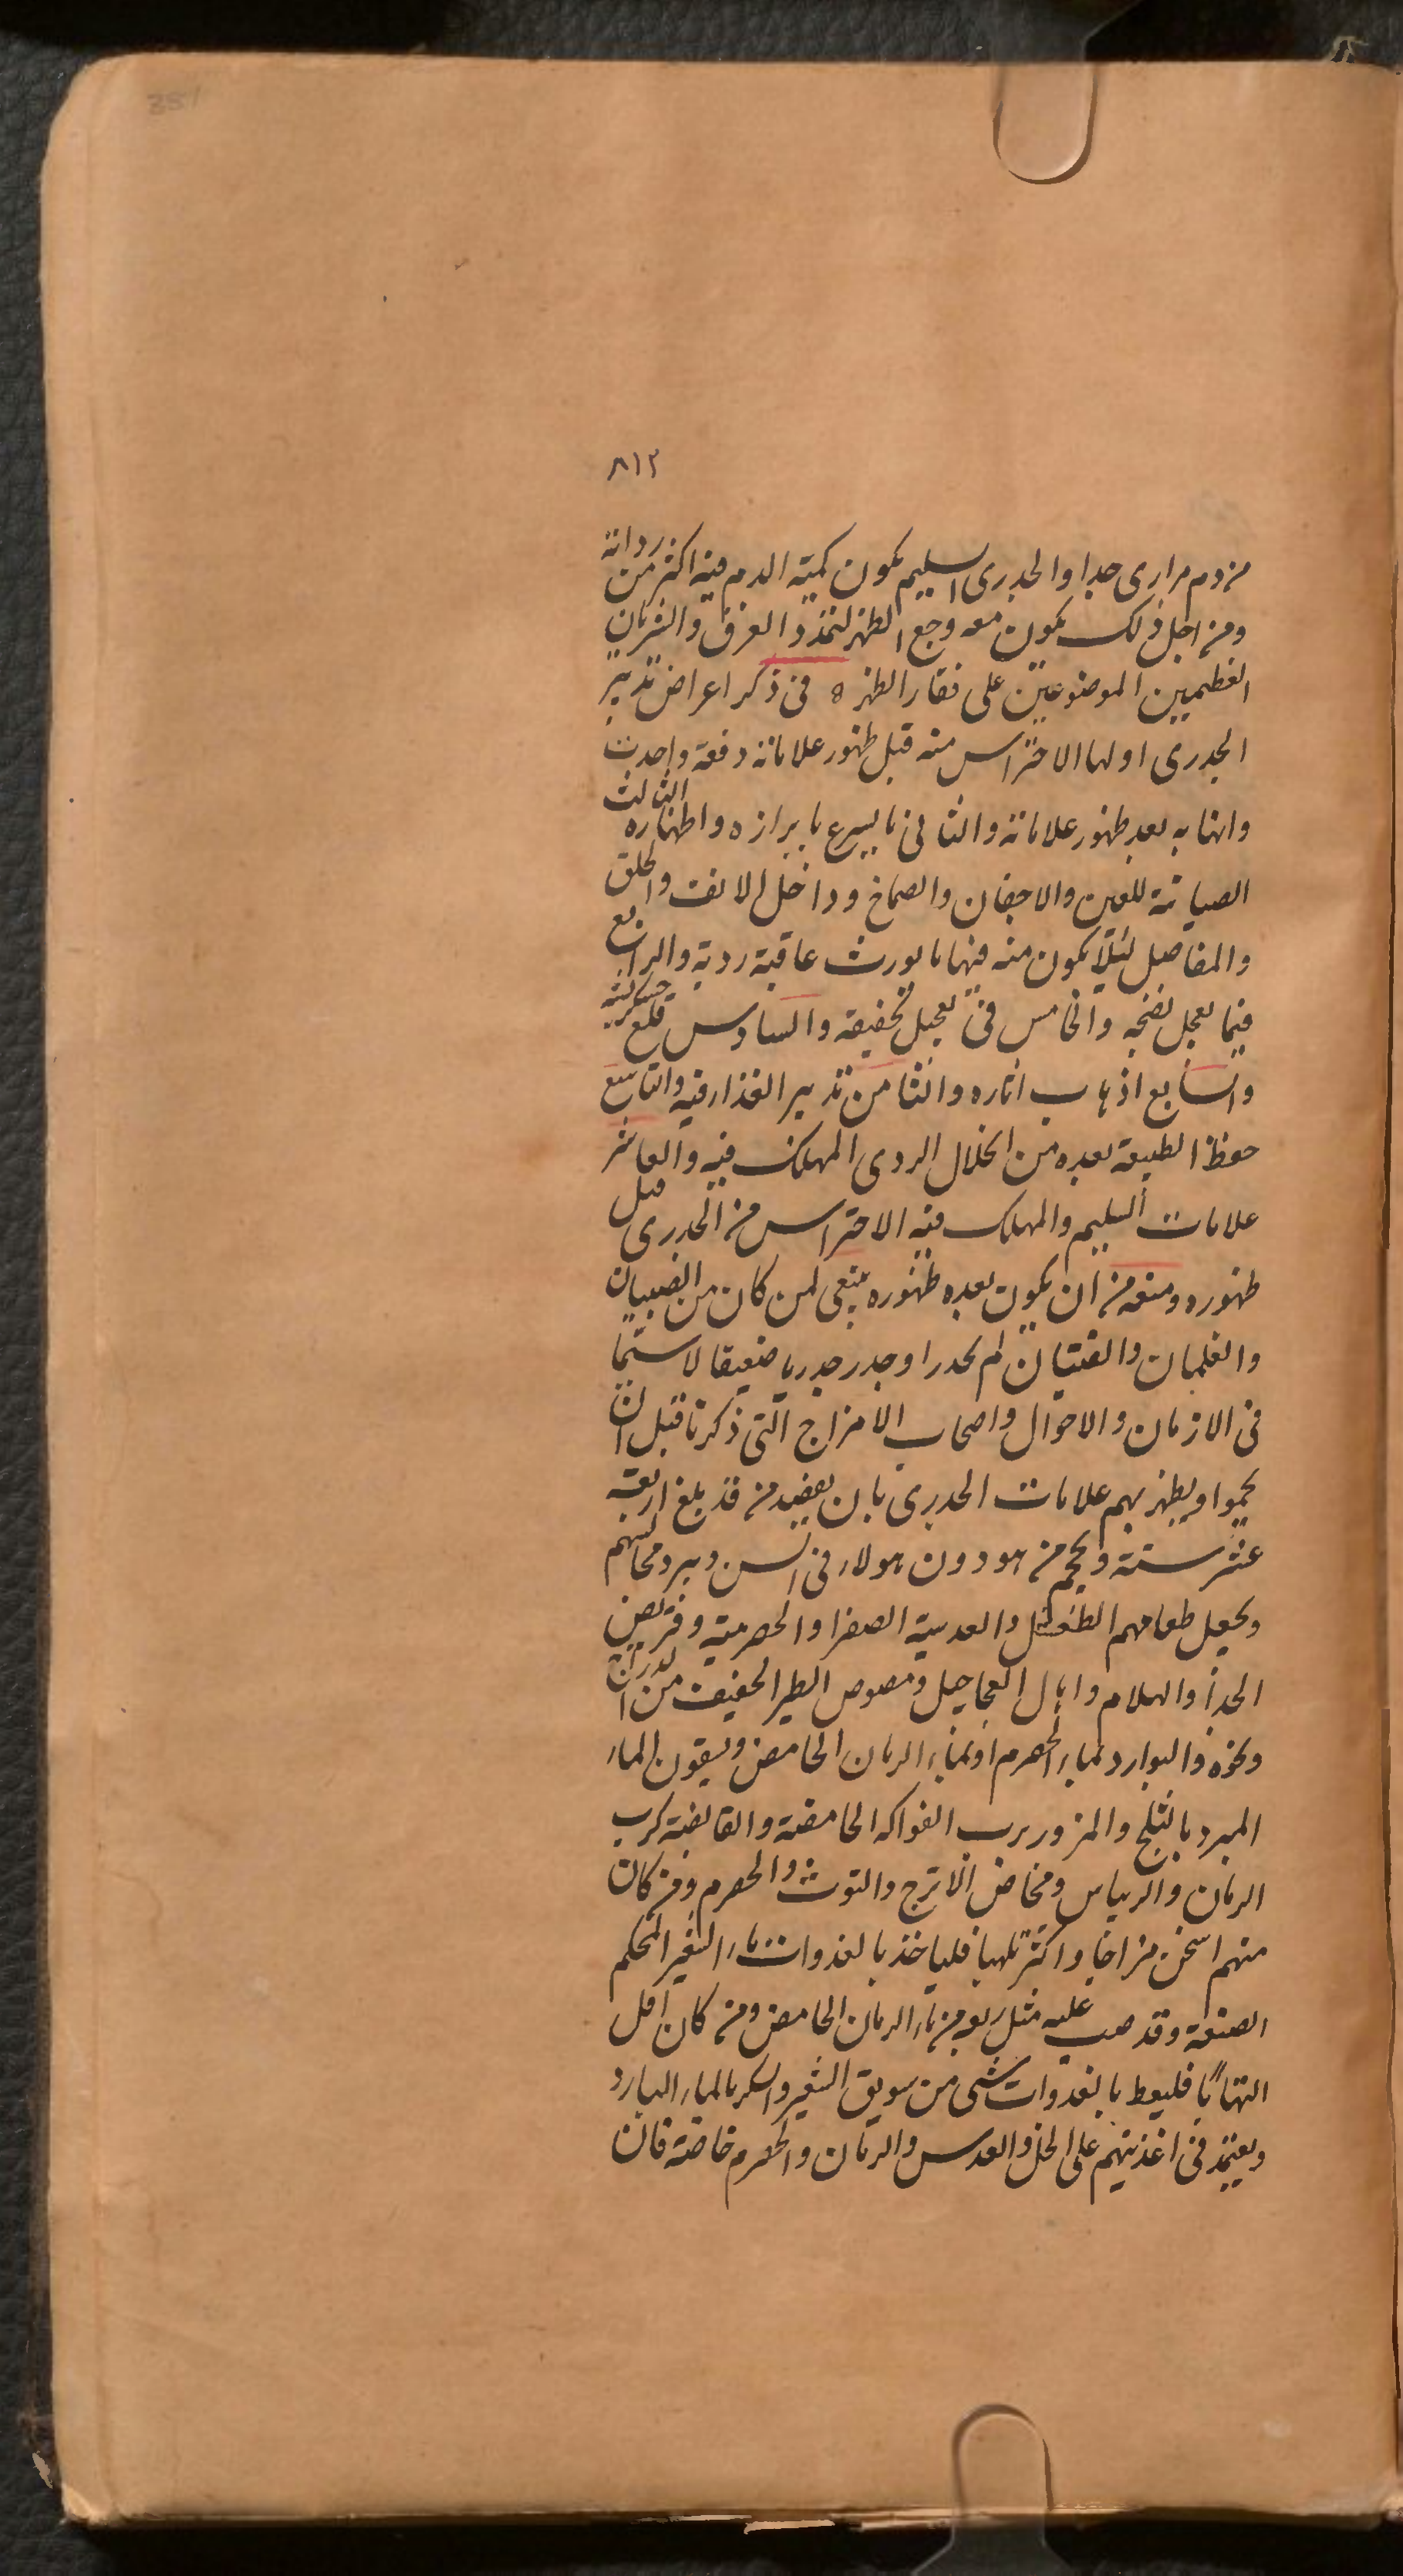 351
٨١٢
من دم مراری جدا والجدری السلیم یکون کمیة الدم فیه اکثر من رداته
ومن اجل ذلک یکون معه وجع الظهر لتمدد العرق والشریان
العظمیین الموضوعین علی فقار الظهر ه فی ذکر اعراض تدبیر
الجدری اولها الاحتراس منه قبل ظهور علاماته دفعة واحدت
وانها به بعد ظهور علاماته والثانی ما یسرع بابرازه واظهاره الثالث
الصیانة للعین والاجفان والصماخ وداخل الانف والحلق
والمفاصل لئلا یکون منه فیها ما یورث عاقبة ردیة والرابع
فیما یعجل نضجه والخامس فی تعجیل تخفیفه والسادس قلع خشکریشه
والسابع اذهاب آثاره والثامن تدبیر الغذاء فیه والتاسع
حفظ الطبیعة بعده من انحلال الردی المهلک فیه والعاشر
علامات السلیم والمهلک منه الاحتراس من الجدری قبل
ظهوره ومنعه من ان یکون بعده ظهوره ینبغی لمن کان من الصبیان
والغلمان والفتیان لم یجدر او جدر جدریا ضعیفا لا سیما
فی الازمان والاحوال واصحاب الامزاج التی ذکرنا قبل ان
یحموا ویظهر بهم علامات الجدری بان یفصد من قد بلغ اربعة
عشر سنة ویحجم من هو دون هولاء فی السن ویبرد مجالسهم
ویجعل طعامهم الطفشل والعدسیة الصفرا والحصرمیة وقریص
الجدأ والهلام وایال العجاجیل ومصوص الطیر الخفیف من الدراج
ونحوه والبوارد بماء الحصرم او بماء الرمان الحامض ویسقون الماء
المبرد بالثلج والمزور برب الفواکه الحامضة والقابضة کرب
الرمان والریباس وحماض الاترج والتوث والحصرم ومن کان
منهم اسخن مزاجا واکثر تلهبا فلیاخذ بالغدوات ماء الشعیر المحکم
الصنعة وقد صب علیه مثل ربعه من ماء الرمان الحامض ومن کان اقل
التهابًا فلیعط بالغدوات شی من سویق الشعیر والسکر بالماء البارد
ویعتمد فی اغذیتهم علی الخل والعدس والرمان والحصرم خاصة فان